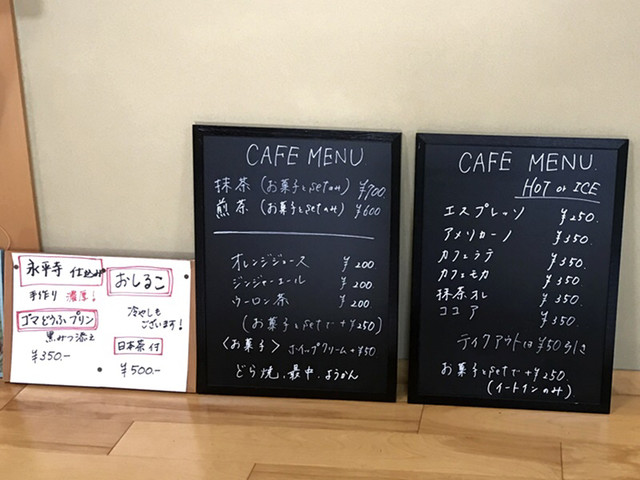 永平寺 仕込み
手作り 濃厚!
ゴマどうふプリン
黒みつ添え
¥350.-
おしるこ
冷やしも
ございます!
日本茶付
¥500.-
CAFE MENU
抹茶(お菓子とsetのみ) ¥700
煎茶(お菓子とsetのみ) ¥600
オレンジジュース ¥200
ジンジャーエール ¥200
ウーロン茶 ¥200
(お菓子とsetで+¥250)
〈お菓子〉 ホイップクリーム+¥50
どら焼、最中、ようかん
CAFE MENU.
HOT or ICE
エスプレッソ ¥250.
アメリカーノ ¥350.
カフェラテ ¥350.
カフェモカ ¥350.
抹茶オレ ¥350.
ココア ¥350.
テイクアウトは¥50引き
お菓子とsetで+¥250
(イートインのみ)